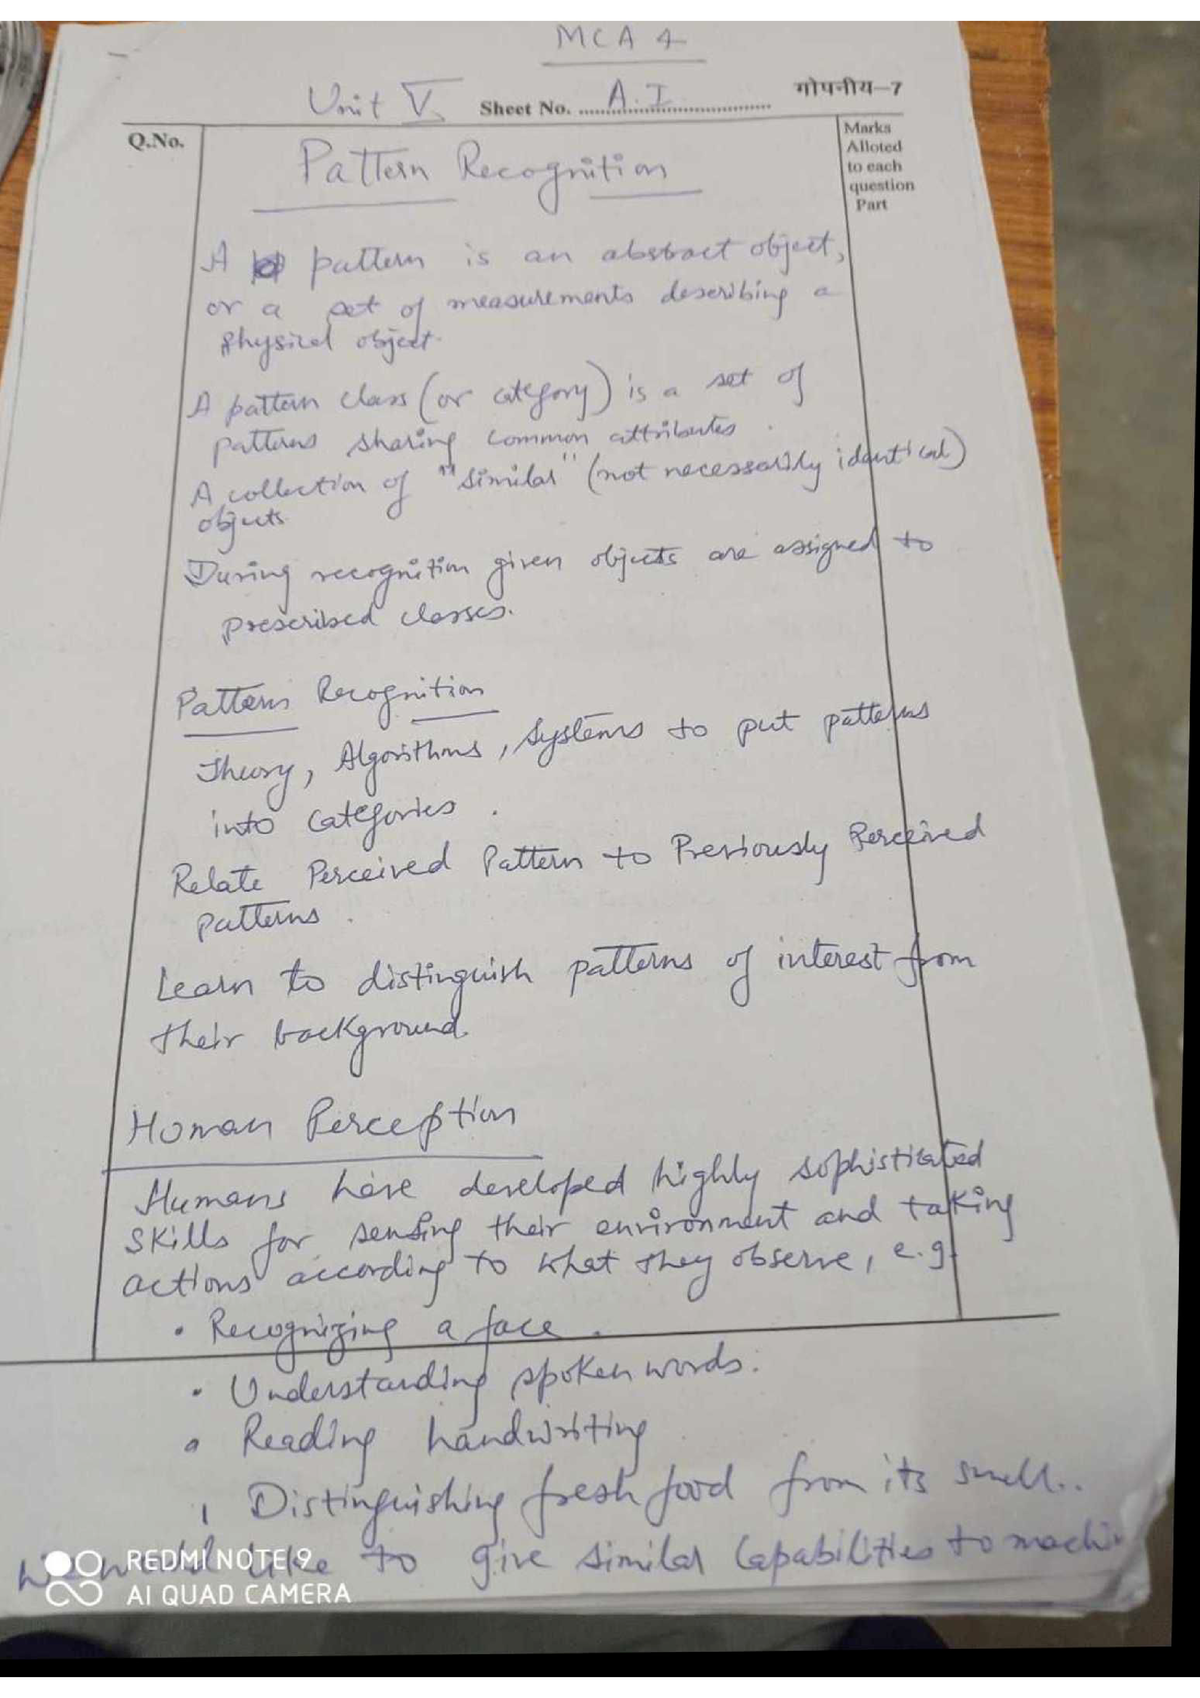 MCA 4
Unit V Sheet No. A.I गोपनीय-7
Q.No.
Marks
Alloted
to each
question
Part
Pattern Recognition
A pattern is an abstract object,
or a set of measurements describing a
physical object.
A pattern class (or category) is a set of
patterns sharing common attributes.
A collection of "similar" (not necessarily identical)
objects.
During recognition given objects are assigned to
prescribed classes.
Pattern Recognition
Theory, Algorithms, Systems to put patterns
into categories.
Relate Perceived Pattern to Previously Perceived
patterns.
Learn to distinguish patterns of interest from
their background.
Human Perception
Humans have developed highly sophisticated
skills for sensing their environment and taking
actions according to what they observe, e.g.
• Recognizing a face.
• Understanding spoken words.
• Reading handwriting
Distinguishing fresh food from its smell..
like to give similar capabilities to machin
REDMI NOTE 9
AI QUAD CAMERA